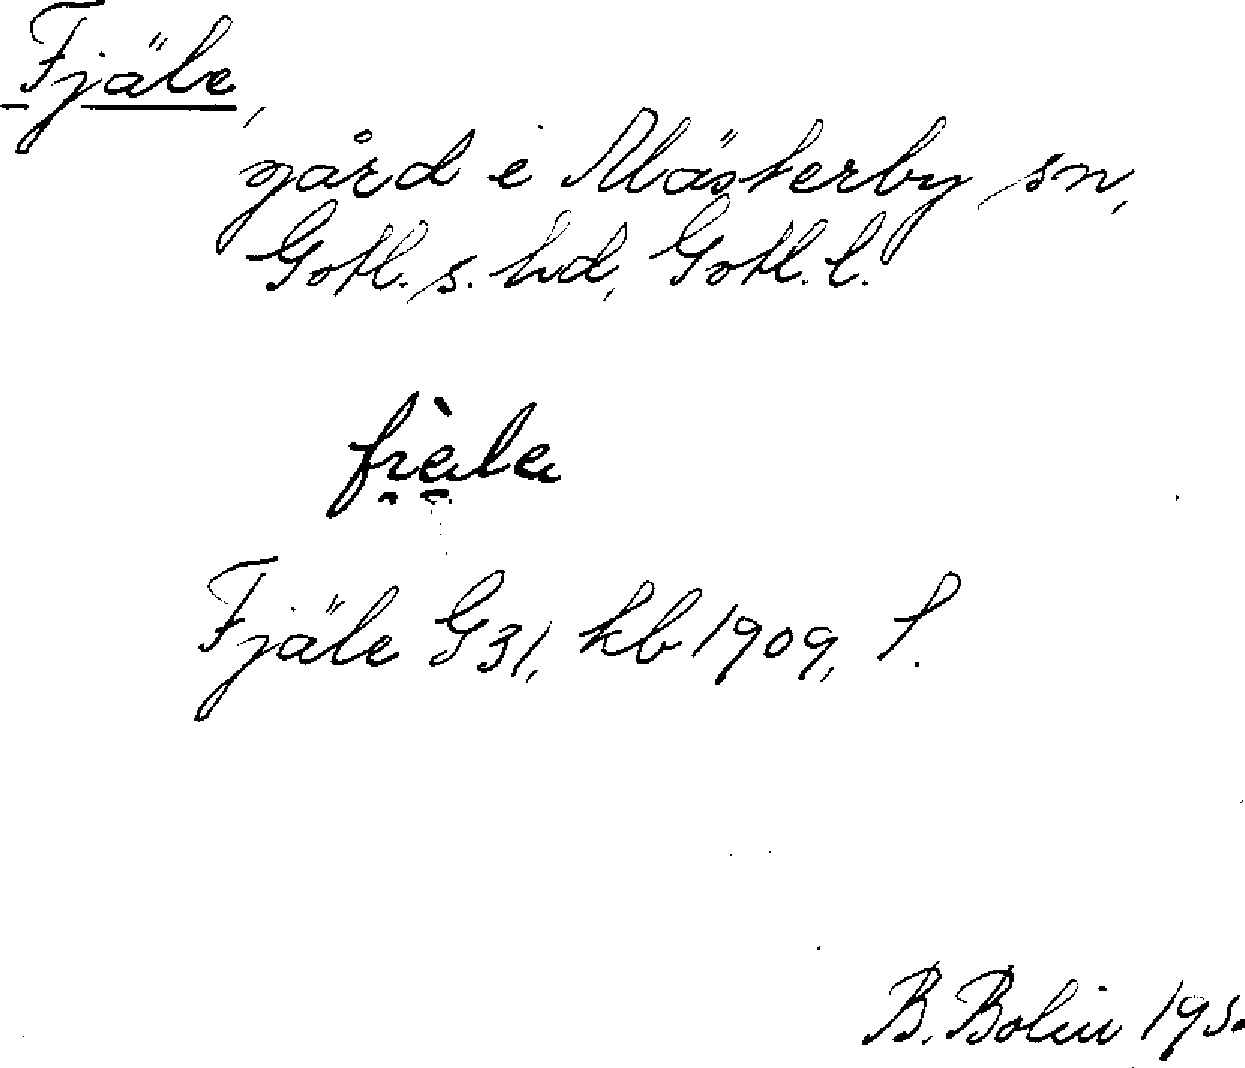 Fjäle,
gård i Mästerby sn,
Gotl. s. hd, Gotl. l.
Fjäle G31, kb 1909, f.
B. Bolin 195